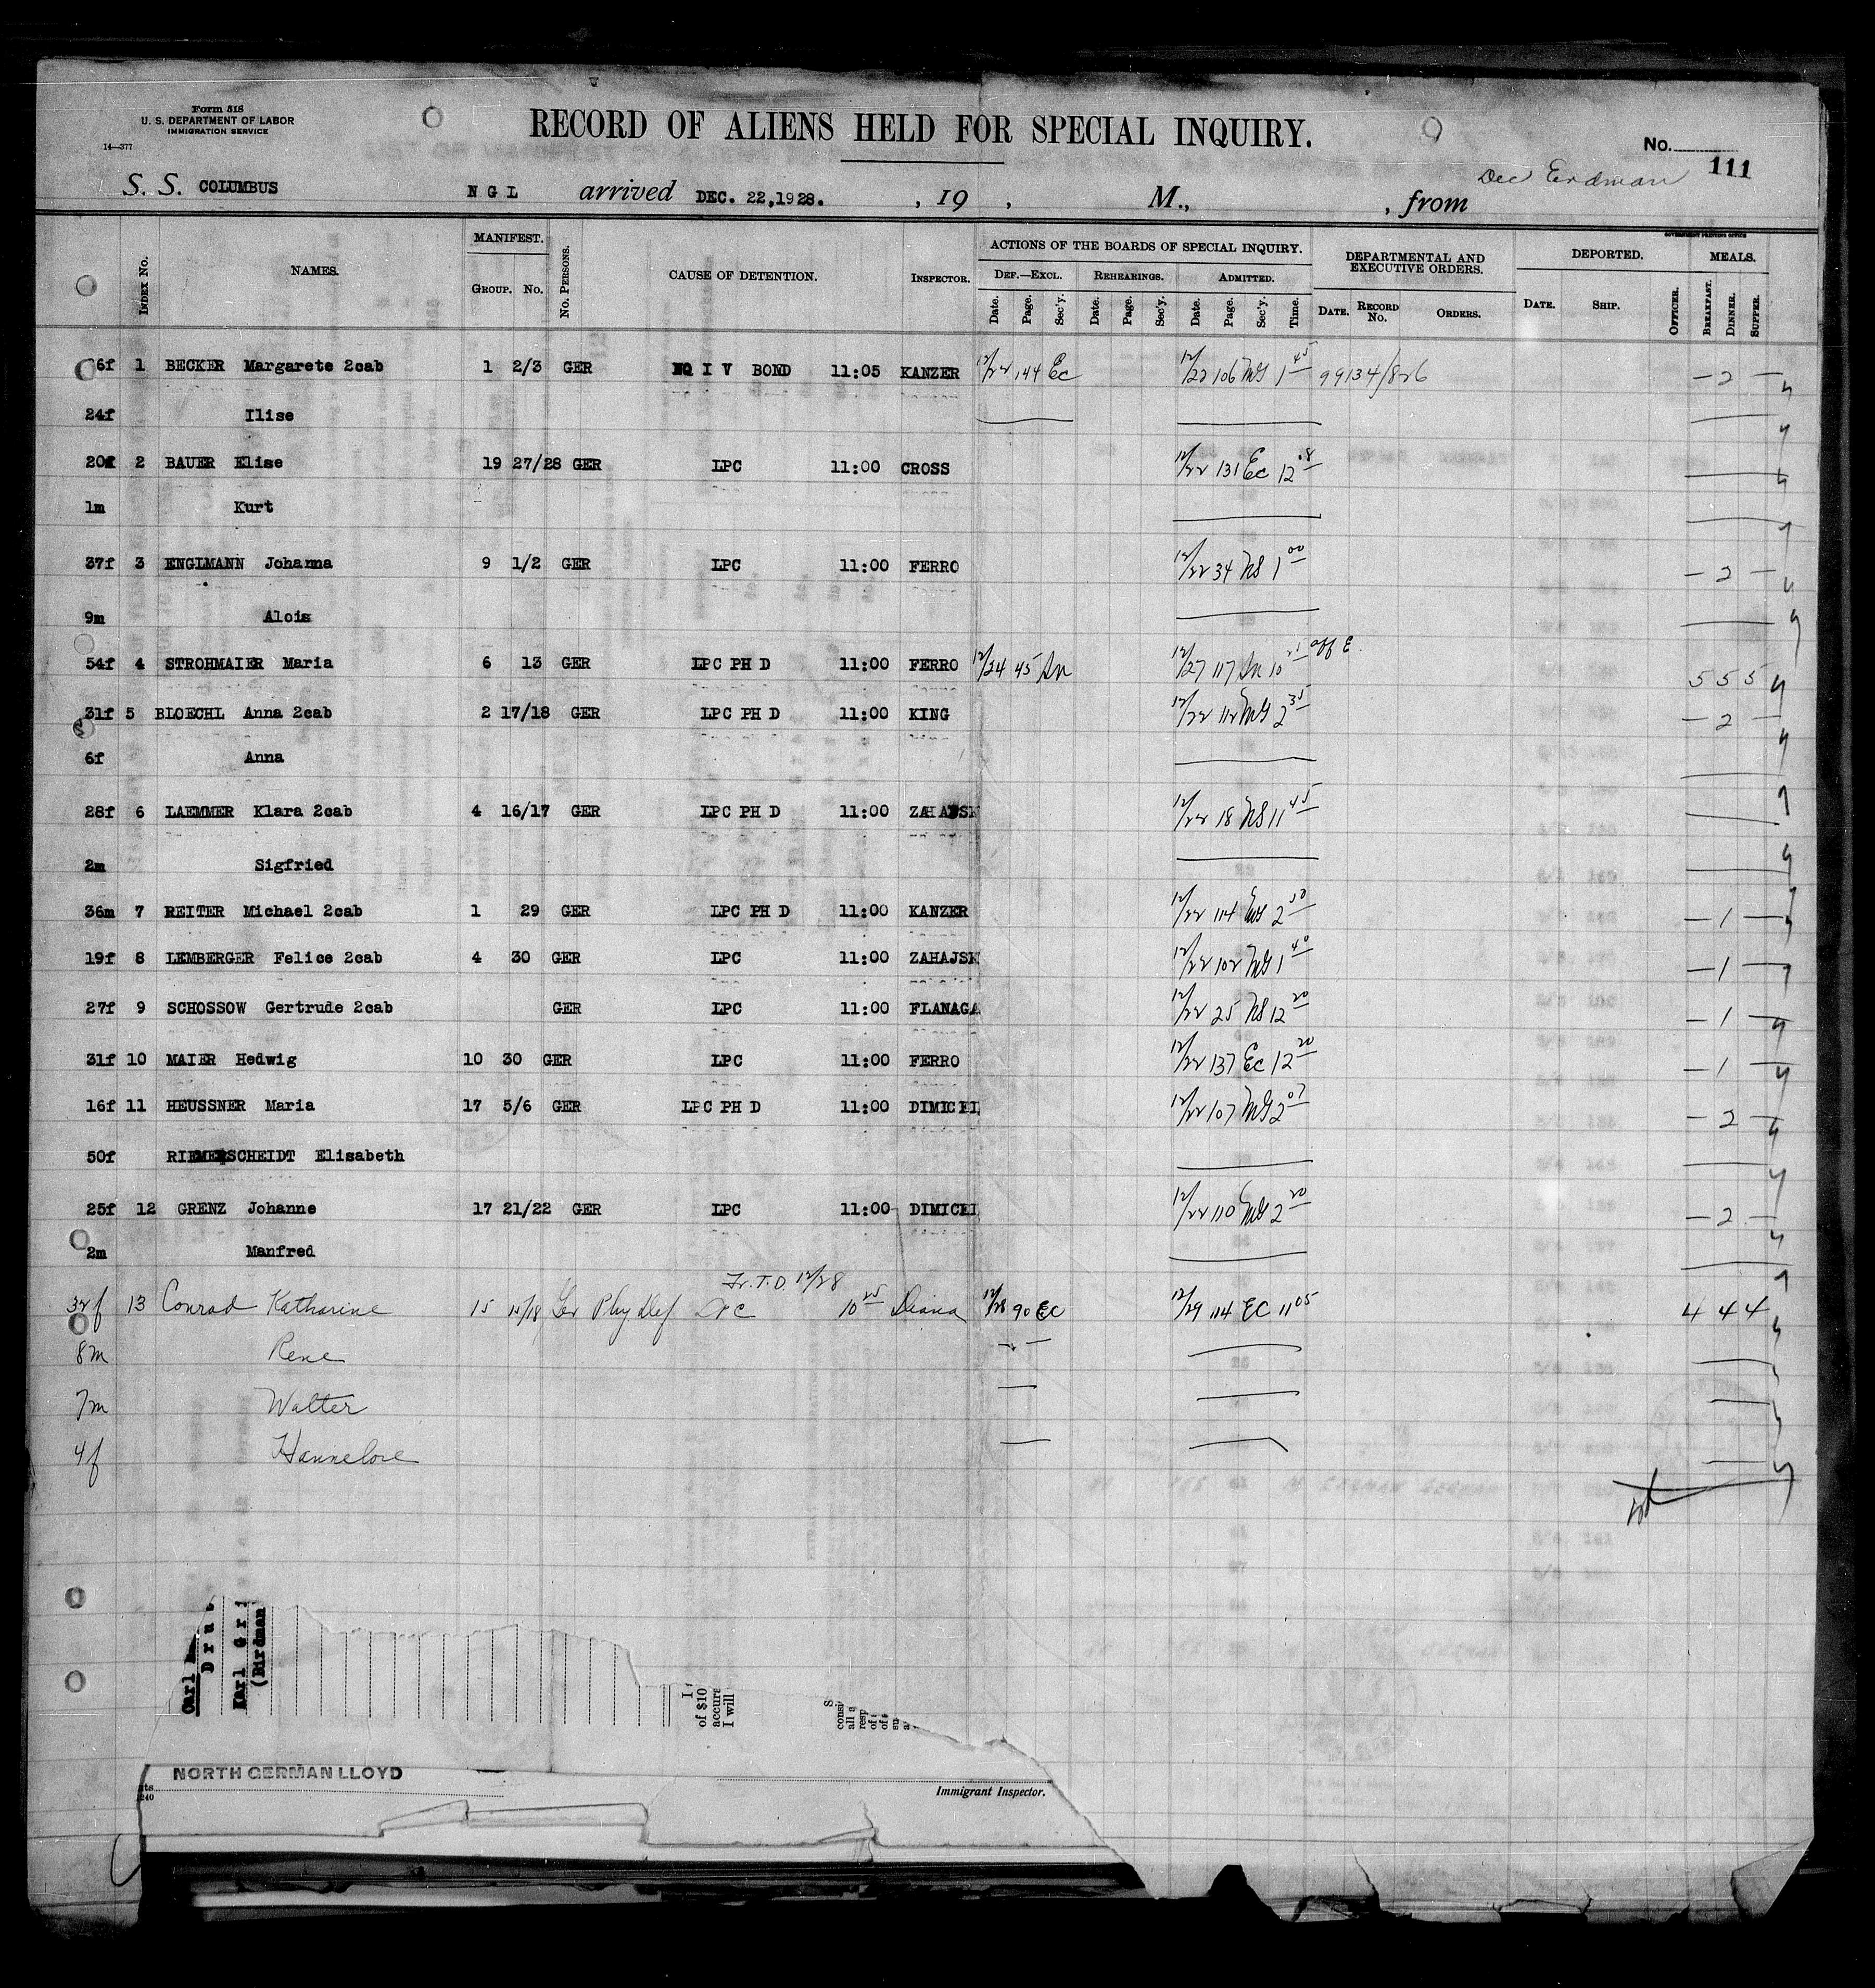 Form 518
U. S. DEPARTMENT OF LABOR
IMMIGRATION SERVICE
14—377
RECORD OF ALIENS HELD FOR SPECIAL INQUIRY.
No. 111
S. S. COLUMBUS N G L arrived DEC. 22,1928. , 19 , M., , from
INDEX No. NAMES. MANIFEST. GROUP. No. No. PERSONS. CAUSE OF DETENTION. INSPECTOR. ACTIONS OF THE BOARDS OF SPECIAL INQUIRY. DEPARTMENTAL AND EXECUTIVE ORDERS. DEPORTED. MEALS.
GOVERNMENT PRINTING OFFICE
DEF.—EXCL. REHEARINGS. ADMITTED.
Date. Page. Sec'y. Date. Page. Sec'y. Date. Page. Sec'y. Time. DATE. RECORD No. ORDERS. DATE. SHIP. OFFICER. BREAKFAST. DINNER. SUPPER.
6f 1 BECKER Margarete 2cab 1 2/3 GER I V BOND 11:05 KANZER 144 Ec 12/22 106 MG 1 45 99134/826 — 2 —
24f Ilise
20f 2 BAUER Elise 19 27/28 GER LPC 11:00 CROSS 12/22 131 Ec 12
1m Kurt
37f 3 ENGLMANN Johanna 9 1/2 GER LPC 11:00 FERRO 12/22 34 NS 1 00 — 2 —
9m Alois
54f 4 STROHMAIER Maria 6 13 GER LPC PH D 11:00 FERRO 12/24 45 12/27 117 10 5 5 5
31f 5 BLOECHL Anna 2cab 2 17/18 GER LPC PH D 11:00 KING 12/22 112 MG 2 35 — 2 —
6f Anna
28f 6 LAEMMER Klara 2cab 4 16/17 GER LPC PH D 11:00 12/22 18 NS 11 45
2m Sigfried
36m 7 REITER Michael 2cab 1 29 GER LPC PH D 11:00 KANZER 12/22 114 MG 2 50 — 1 —
19f 8 LEMBERGER Felice 2cab 4 30 GER LPC 11:00 ZAHAJSK 12/22 102 MG 1 40 — 1 —
27f 9 SCHOSSOW Gertrude 2cab GER LPC 11:00 FLANAGA 12/22 25 NS 12 20 — 1 —
31f 10 MAIER Hedwig 10 30 GER LPC 11:00 FERRO 12/22 137 Ec 12 20 — 1 —
16f 11 HEUSSNER Maria 17 5/6 GER LPC PH D 11:00 DIMICEL 12/22 107 MG 2 07 — 2 —
50f RIEMERSCHEIDT Elisabeth
25f 12 GRENZ Johanne 17 21/22 GER LPC 11:00 DIMICEL 12/22 110 MG 2 20 — 2 —
2m Manfred
12/28
32f 13 Conrad Katharine 15 15/18 Ger Phy def LPC 10 25 Diana 12/28 90 EC 12/29 114 EC 11 05 4 4 4
8m Rene
7m Walter
4f Hannelore
Carl
D r u
Karl G r i
(Birdman
I
of $10
accura
I will
S
consi
all a
resp
of
of
su
NORTH GERMAN LLOYD
Immigrant Inspector.